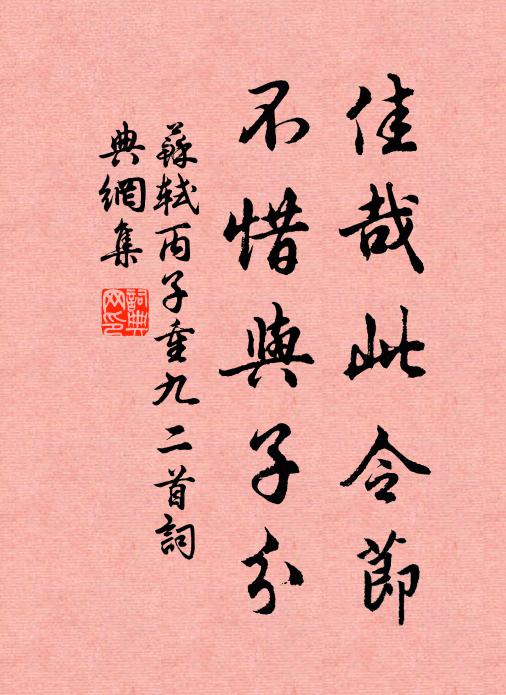 佳哉此令節
不惜與子分
蘇軾丙子重九二首詞
典網集
詞典網印